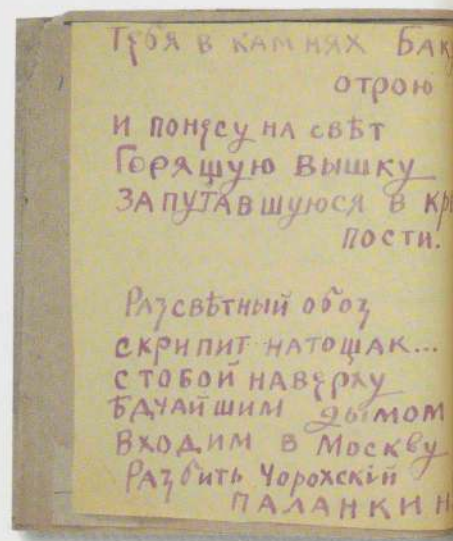 Тебя в камнях Бак
отрою
и понесу на свѣт
Горящую вышку
Запутавшуюся в кр
пости.
Разсвѣтный обоз
скрипит натощак...
с тобой наверху
ѣдчайшим дымом
входим в Москву
Разбить Чорохскій
паланкин